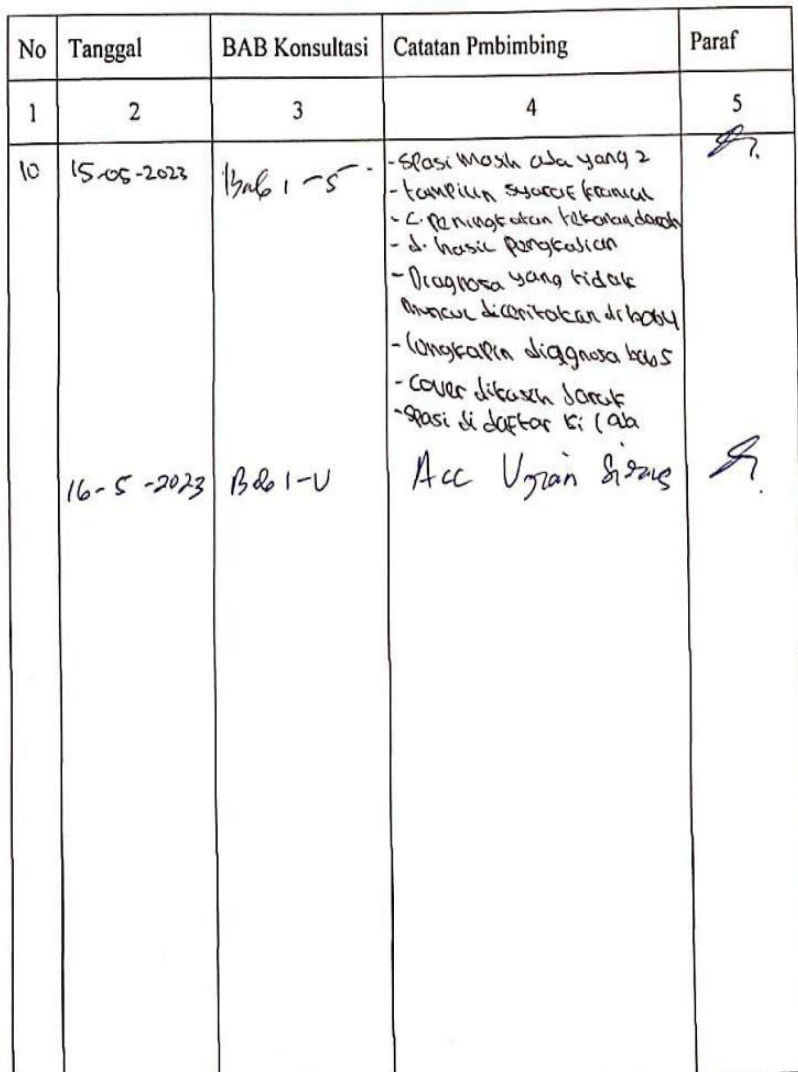 No Tanggal BAB Konsultasi Catatan Pmbimbing Paraf
1 2 3 4 5
10 15-05-2023 Bab 1-5 - spasi masih ada yang 2
- tampilin syaraf kranial
- c. peningkatan tekanan darah
- d. hasil pengkajian
- Diagnosa yang tidak
muncul diceritakan di bab 4
- lengkapin diagnosa bab 5
- cover dikasih jarak
- spasi di daftar isi
16-5-2023 Bab 1-V Acc Ujian